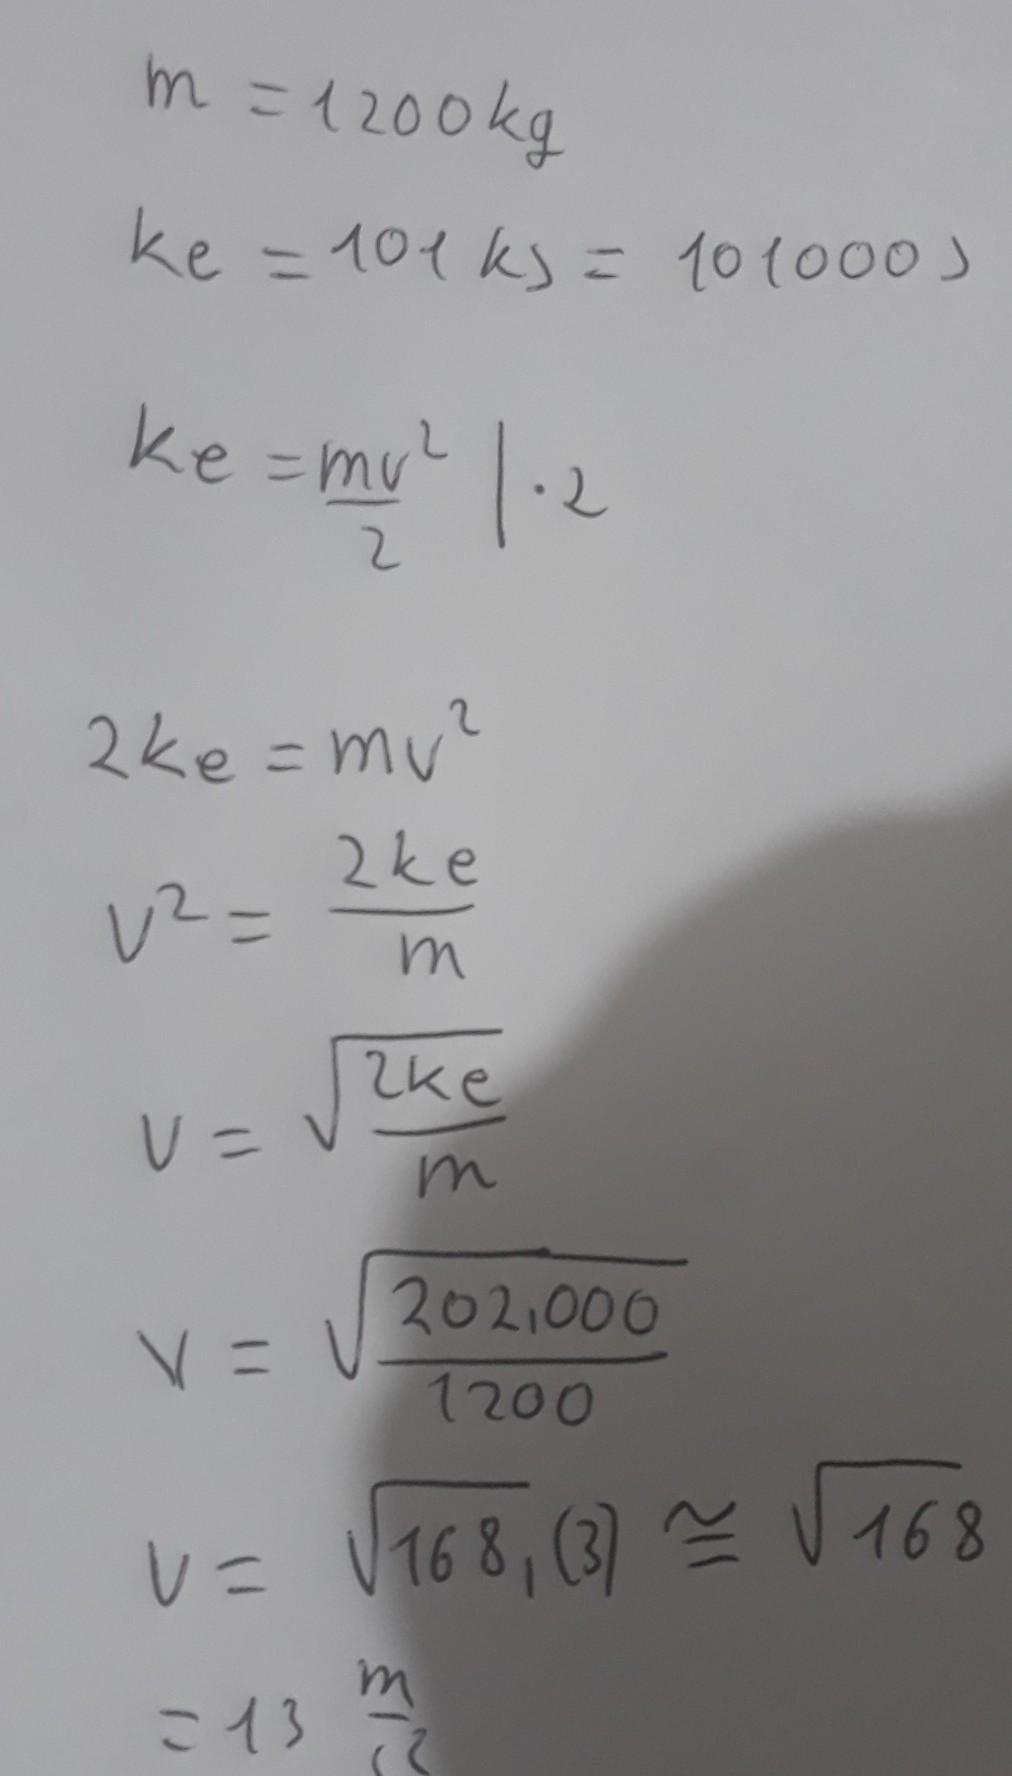 m = 1200 kg
ke = 101 kJ = 101000 J
ke = mv²/2 | · 2
2ke = mv²
v² = 2ke/m
v = √(2ke/m)
v = √(202,000/1200)
v = √168,(3) ≅ √168
= 13 m/s²